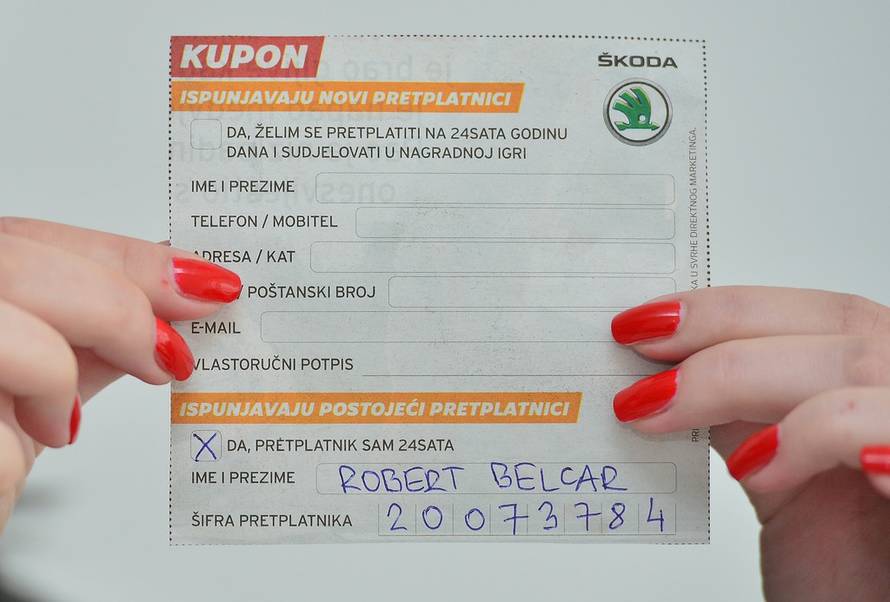 KUPON
ŠKODA
ISPUNJAVAJU NOVI PRETPLATNICI
DA, ŽELIM SE PRETPLATITI NA 24SATA GODINU
DANA I SUDJELOVATI U NAGRADNOJ IGRI
IME I PREZIME
TELEFON / MOBITEL
ADRESA / KAT
/ POŠTANSKI BROJ
E-MAIL
VLASTORUČNI POTPIS
ISPUNJAVAJU POSTOJEĆI PRETPLATNICI
X DA, PRETPLATNIK SAM 24SATA
IME I PREZIME ROBERT BELCAR
ŠIFRA PRETPLATNIKA 20073784
U SVRHE DIREKTNOG MARKETINGA.